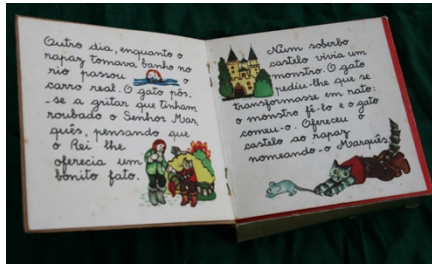 Outro dia, enquanto o
rapaz tomava banho no
rio passou o
carro real. O gato pôs-
-se a gritar que tinham
roubado o Senhor Mar
quês, pensando que
o Rei lhe
oferecia um
bonito fato.
Num soberbo
castelo vivia um
monstro. O gato
pediu-lhe que se
transformasse em rato:
o monstro fê-lo e o gato
comeu-o. Ofereceu o
castelo ao rapaz
nomeando-o Marquês.